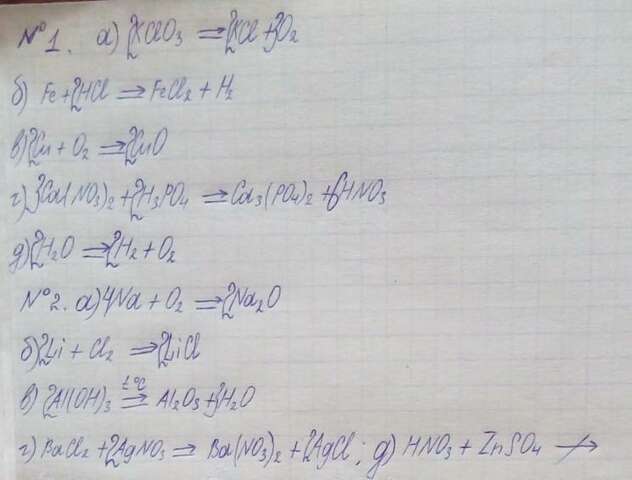 №1. а) 2KClO₃ = 2KCl + 3O₂
б) Fe + 2HCl = FeCl₂ + H₂
в) 2Cu + O₂ = 2CuO
г) 3Ca(NO₃)₂ + 2H₃PO₄ = Ca₃(PO₄)₂ + 6HNO₃
д) 2H₂O = 2H₂ + O₂
№2. а) 4Na + O₂ = 2Na₂O
б) 2Li + Cl₂ = 2LiCl
в) 2Al(OH)₃ =t°C= Al₂O₃ + 3H₂O
г) BaCl₂ + 2AgNO₃ = Ba(NO₃)₂ + 2AgCl; д) HNO₃ + ZnSO₄ ↛